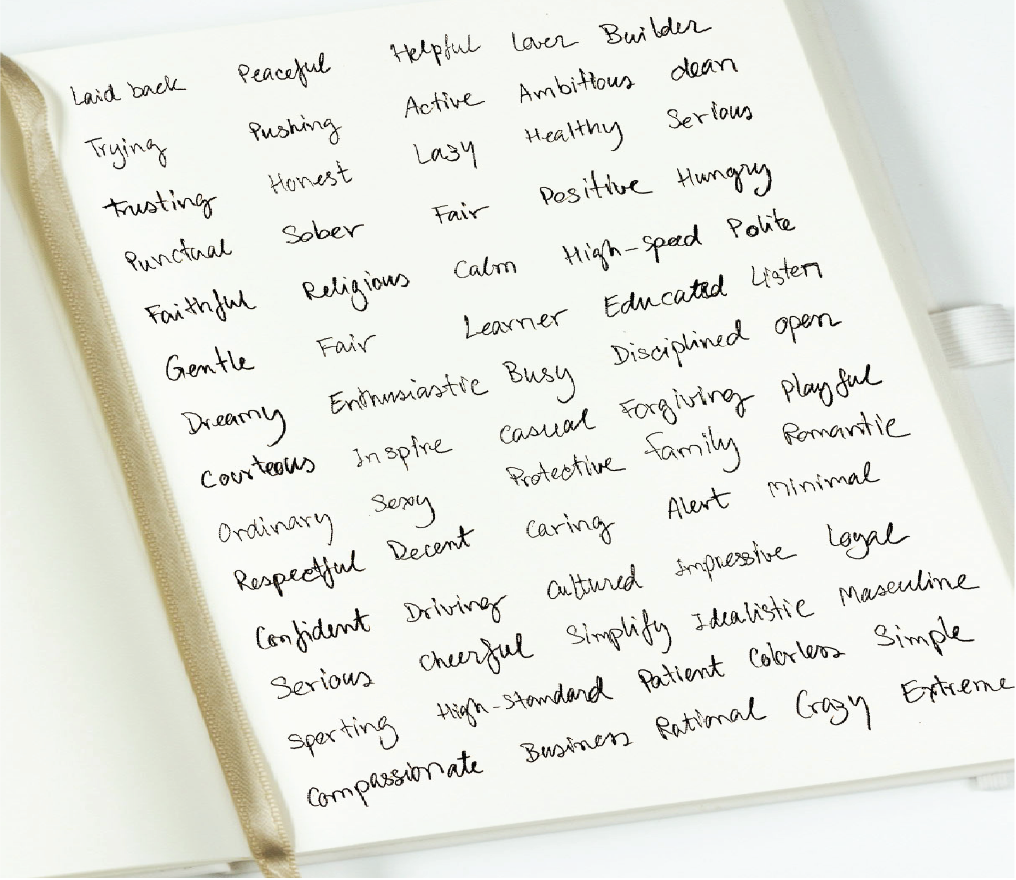 Laid back Peaceful Helpful Lover Builder
Trying Pushing Active Ambitious clean
Trusting Honest Lazy Healthy Serious
Punctual Sober Fair Positive Hungry
Faithful Religious Calm High-speed Polite
Gentle Fair Learner Educated Listen
Dreamy Enthusiastic Busy Disciplined open
Courteous Inspire Casual Forgiving Playful
Ordinary Sexy Protective family Romantic
Respectful Decent Caring Alert Minimal
Confident Driving Cultured Impressive Loyal
Serious Cheerful Simplify Idealistic Masculine
Sporting High-Standard Patient Colorless Simple
Compassionate Business Rational Crazy Extreme